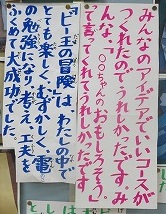 みんなのアイデアでいいコースが
つくれたのでうれしかったです。み
んな、「〇〇ちゃんのおもしろそう。」
て言ってくれてうれしかったです。
「ビー玉の冒険」は、わたしの中で
とても楽しく、むずかしく、電
の勉強になり、考え、工夫を
ふかめ、大成功でした。